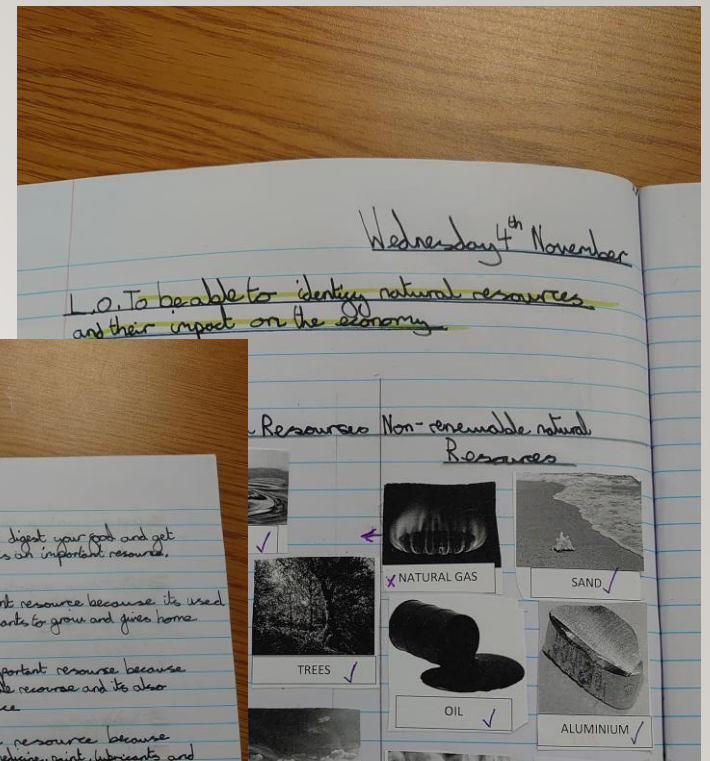 Wednesday 4th November
L.O. To be able to identify natural resources
and their impact on the economy
Resourses Non-renewable natural
Resources
NATURAL GAS
SAND
TREES
OIL
ALUMINIUM
digest your food and get
s an important resource.
nt resource because its used
ants to grow and gives home
portant resourse because
le recourse and its also
ce
resource because
edicine, paint, lubricants and